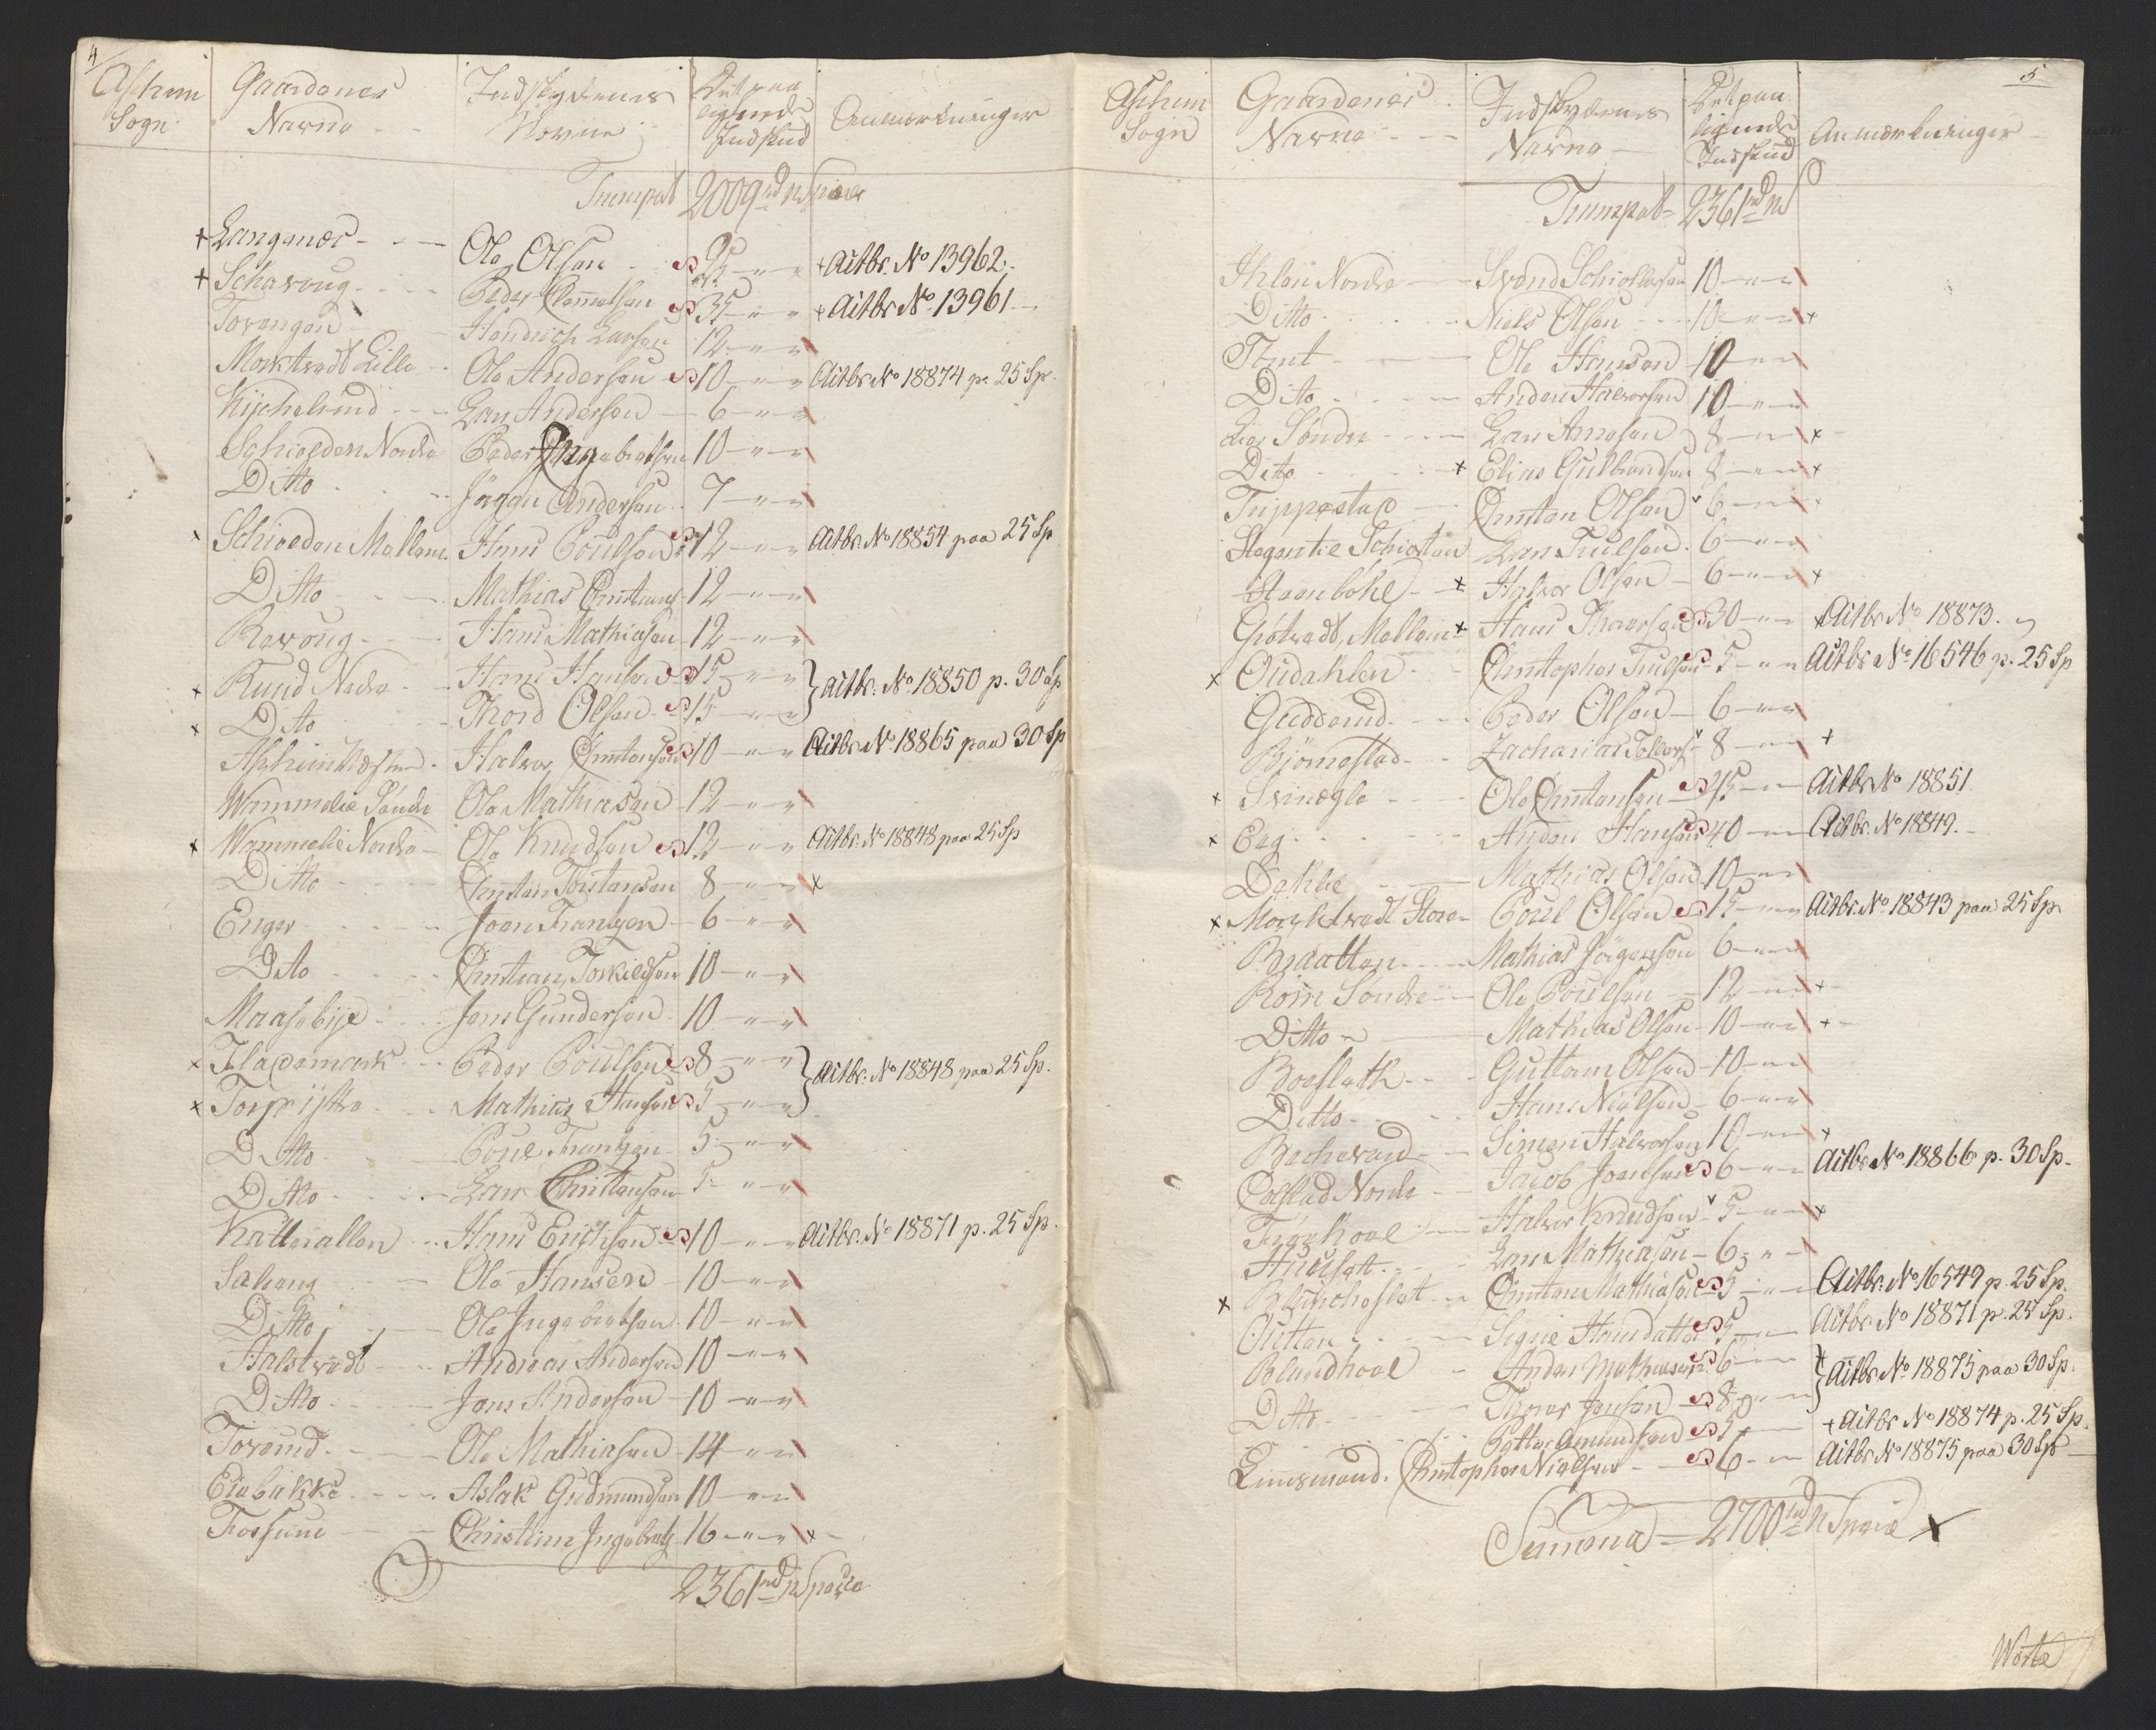 4
Aschim Sogn
Gaardenes Navne
Indskydernes Navne
Det paalignende Indskud
Anmærkninger
Transport 2009 rd n Specie
+ Langenæs - Ole Olsen 25 + Actbr. No 13962.
+ Schavoug - Peder Clemetsen 35 + Actbr No 13961
Torengen - Hendrich Larsen 12
Morktvedt Lille - Ole Andersen 10 Actbr No 18874 p. 25 Sp.
Kychelsrud - Lars Andersen 6
Schiolden Nordre Peder Ingebretsen 10
Ditto - Jørgen Andersen 7
Schiolden Mellem Hans Poulsen 12 Actbr. No 18854 paa 25 Sp
Ditto - Mathias Christians 12
Revoug - Hans Mathiesen 12
x Rund Nedre - Hans Hansen 15 } Actbr. No 18850 p. 30 Sp
x Dito - Thord Olsen 15
Aschim Westre - Halvor Christensen 10 Actbr No 18865 paa 30 Sp
Wammelie Søndre Ole Mathiesen 12
x Wammelie Nordre - Ole Knudsen 12 Actbr. No 18848 paa 25 Sp
Ditto - Christen Torstensen 8 x
Enger - Joen Frantzen 6
Dito - Christian Torkildsen 10
Maasebye - Jens Gundersen 10
x Fladmark - Peder Poulsen 8 } Actbr. No 18848 paa 25 Sp.
x Torp ijstre - Mathias Hansen 5
Ditto - Poul Frantzen 5
Ditto - Lars Christensen 5
Kattevallen - Hans Erichsen 10 Actbr. No 18871 p. 25 Sp.
Sekong - Ole Hansen 10
Ditto - Ole Ingebretsen 10
Halstvedt - Andreas Andersen 10
Ditto - Jens Andersen 10
Torerud - Ole Mathiesen 14
Eiebakke - Aslak Gudmundsen 10
Fossum - Christian Ingebretz 16 x
2361 rd n Specie
5
Aschim Sogn
Gaardenes Navne
Indskydernes Navne
Det paaligende Indskud
Anmærkninger
Transport 2361 rd n S
Ihlen Nordre - Svend Schiollersen 10
Ditto - Niels Olsen 10 x
Tomt - Ole Hansen 10
Dito - Anders Halvorsen 10
Lier Søndre - Lars Arnesen 8 x
Dito - x Elias Gulbrandsen 8 x
Trippestad - Christen Olsen 6
Stegentie Schiolten Lars Truelsen 6
Steenbøhl - x Halvor Olsen 6 x
Grøtvedt Mellem x Hans Thoresen 30 x Actbr No 18873.
x Oudahlen - Christopher Truelsen 5 Actbr No 16546 p. 25 Sp
Gudderud - Peder Olsen 6
Bjørnestad - Zacharias Tollers 8 x
x Svinegle - Ole Christensen 25 Actbr No 18851
x Eeg - Anders Hansen 40 Actbr. No 18849.
Dahle - Mathias Olsen 10
x Morktvedt Store - Poul Olsen 15 Actbr. No 18843 paa 25 Sp.
Bredatten - Mathias Jørgensen 6
Rom Søndre - Ole Poulsen 12 x
Ditto - Mathias Olsen 10 x
Boeslath - Guttorm Olsen 10
Ditto - Hans Nielsen 6
Bachevand - Simen Halvorsen 10 x
Colstad Nordre - Jacob Joensen 6 Actbr No 18866 p. 30 Sp.
- Halvor Knudsen 5 x
- Lars Mathiesen 6
x - Christen Mathiesen 5 Actbr. No 16549 p. 25 Sp.
Outtan - Signe Hansdatter 5 Actbr No 18871 p. 25 Sp.
Blundhoel - Anders Mathiesen 6 } Actbr. No 18875 paa 30 Sp.
Ditto - Thorer Jensen 8
Petter Amundsen 5 + Actbr No 18874 p. 25 Sp.
Christopher Nielsen 6 Actbr No 18875 paa 30 Sp
Summa = 2700 rd n Specie x